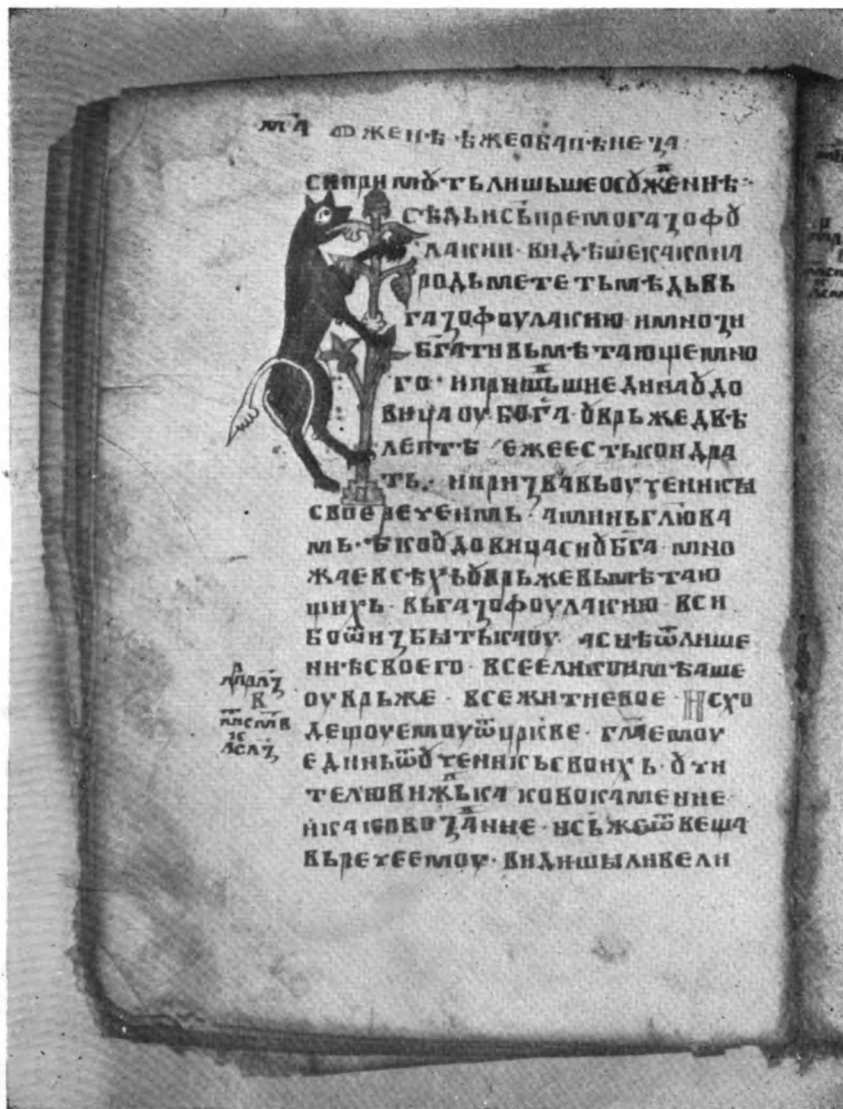 м҃а ѡ женѣ · ѣже ѡба пѣнеꙁа
си приимꙋть лишьше ѡсꙋжениѣ ·
сѣдь ис҃ь прѣмо гаꙁофꙋ
лакии · видѣше како на
родь мететь мѣдь вь
гаꙁофоулакию · и мноꙁи
б҃гати вьмѣтающе мно
го · и пришьши едина вдо
вица оубога · вврьже двѣ
лептѣ еже есть кондра
ть · и приꙁвавь оученикы
свое рече имь · аминь г҃лю ва
мь · ѣко вдовица си ꙋб҃га · мно
жае всѣхь вврьже вьмѣтаю
щихь · вь гаꙁофоулакию · вси
бо ѿ иꙁбытька оу · а си ѣ ѿ лише
ниѣ своего · все елико имѣаше
оуврьже · все житие вое · Исхо
дещоу емоу ѿ цр҃кве · г҃ла емоу
единь ѿ ꙋченикь своихь · ꙋчи
телю вижь како во камение
и како во ꙁдание · и с҃ь же ѿвеща
вь рече емоу · видишы ли вели